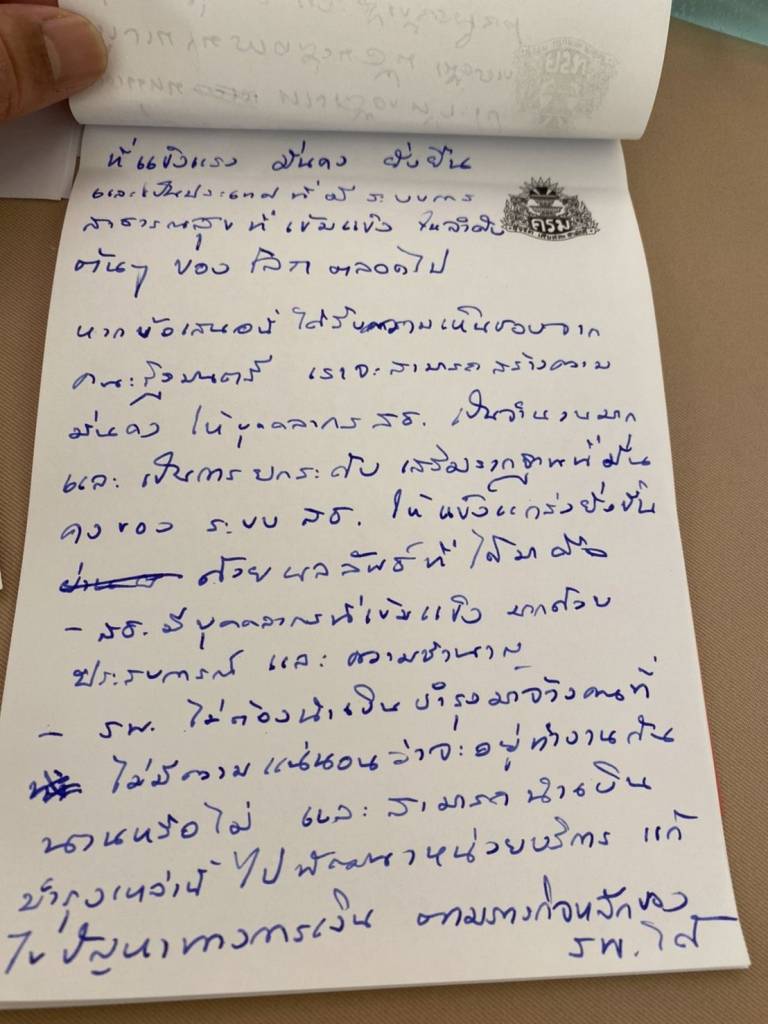 ที่แข็งแรง มั่นคง ยั่งยืน
และเป็นประเทศที่มี ระบบการ
สาธารณสุขที่เข้มแข็ง ในลำดับ
ต้นๆ ของ โลก ตลอดไป
ครม
หากข้อเสนอนี้ ได้รับความเห็นชอบจาก
คณะรัฐมนตรี เราจะสามารถสร้างความ
มั่นคง ให้บุคคลากร สธ. เป็นจำนวนมาก
และ เป็นการยกระดับ เสริมรากฐานที่มั่น
คงของ ระบบ สธ. ให้แข็งแกร่งยั่งยืน
ด้วยผลลัพธ์ที่ได้มาคือ
- สธ. มีบุคคลากรที่เข้มแข็ง มากด้วย
ประสบการณ์ และ ความชำนาญ
- รพ. ไม่ต้องนำเงินบำรุงมาจ้างคนที่
ไม่มีความแน่นอนว่าจะอยู่ทำงานกัน
นานหรือไม่ และ สามารถนำเงิน
บำรุงเหล่านี้ ไปพัฒนาหน่วยบริการ แก้
ไขปัญหาทางการเงิน ตามภารกิจหลักของ
รพ. ได้